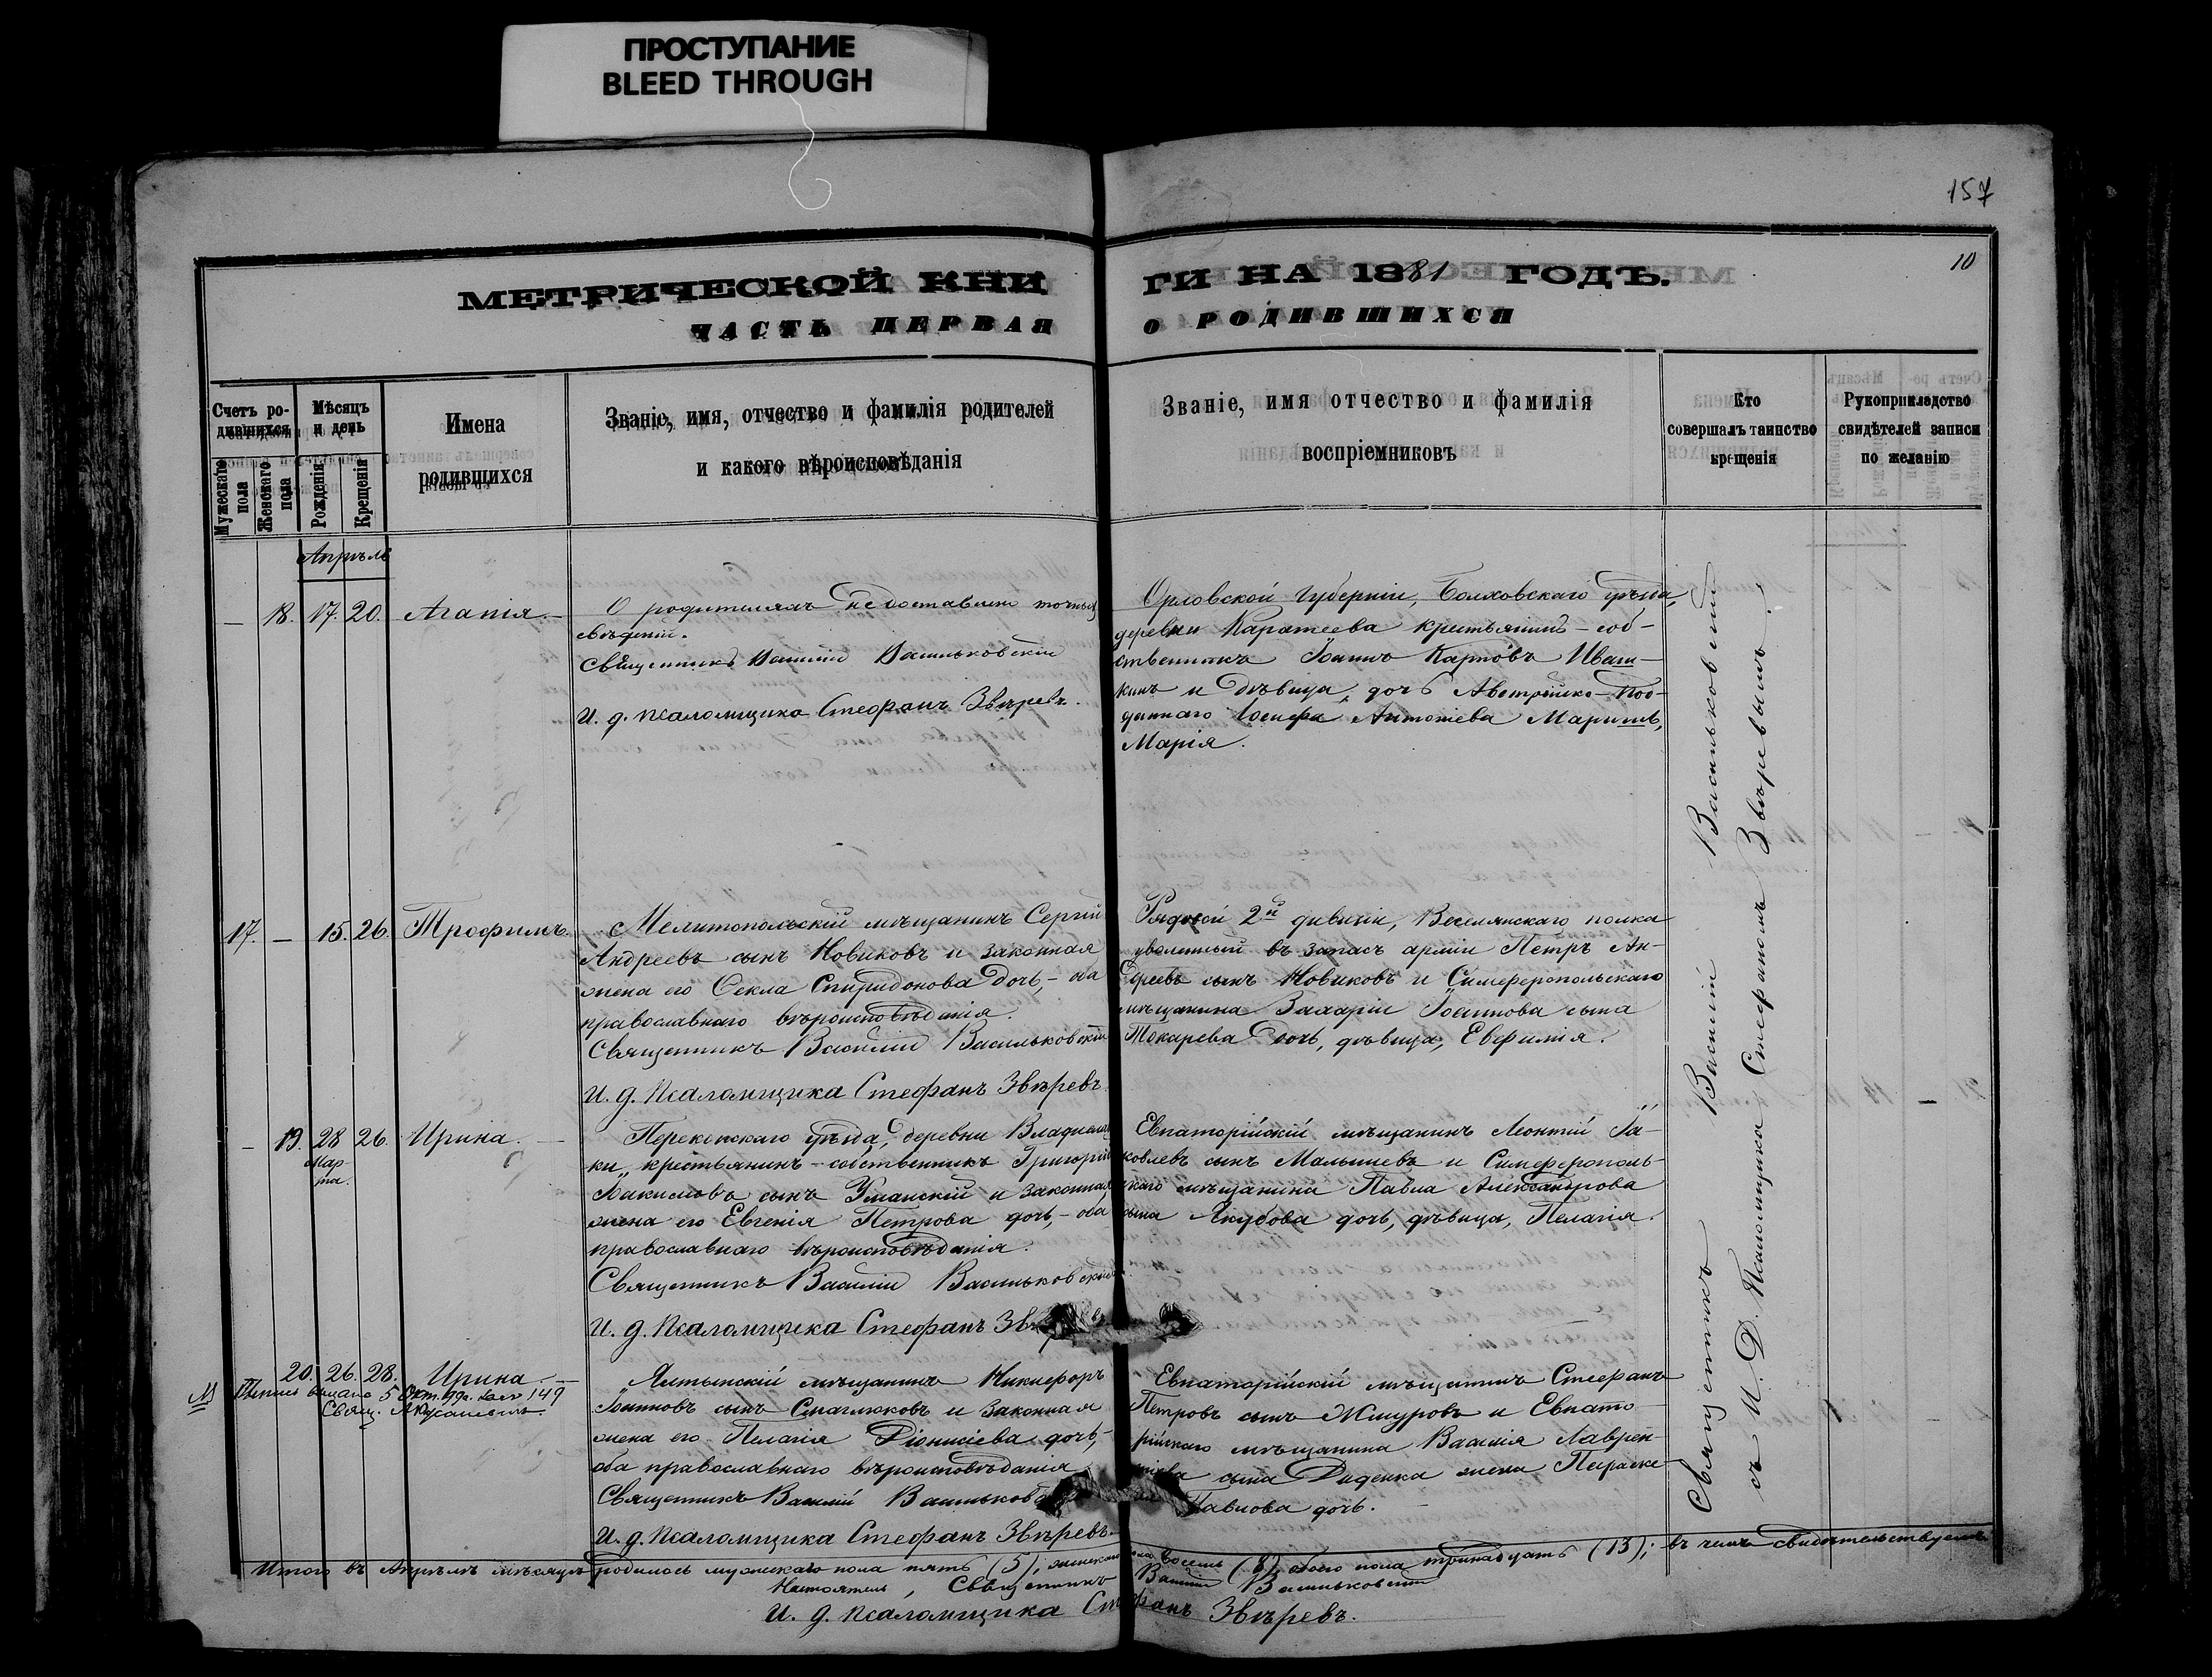 ПРОСТУПАНИЕ
BLEED THROUGH
157
10
МЕТРИЧЕСКОЙ КНИ
ГИ НА 1881 ГОДЪ.
ЧАСТЬ ПЕРВАЯ
О РОДИВШИХСЯ
Счетъ ро-
дившихся
Мужескаго
пола
Женскаго
пола
Мѣсяцъ
и день
Рожденія
Крещенія
Имена
родившихся
Званіе, имя, отчество и фамилія родителей
и какого вѣроисповѣданія
Званіе, имя отчество и фамилія
воспріемниковъ
Кто
совершалъ таинство
крещенія
Рукоприкладство
свидѣтелей записи
по желанію
Апрѣль
— 18. 17. 20. Агапія.—
О родителяхъ недоставлено точныхъ
свѣденій.
Священникъ Василій Васильковскій
И. д. псаломщика Стефанъ Звѣревъ.
Орловской Губерніи, Болховскаго уѣзда,
деревни Каратеева крестьянинъ-соб-
ственникъ Іоаннъ Карповъ Иваш-
кинъ и дѣвица, дочь Австрійско-под-
даннаго Іосифа Антоніева
Марія.
17. — 15. 26. Трофимъ.
Мелитопольскій мѣщанинъ Сергій
Андреевъ сынъ Новиковъ и законная
жена его Ѳекла Спиридонова дочь,- оба
православнаго вѣроисповѣданія.
Священникъ Василій Васильковскій
И. д. Псаломщика Стефанъ Звѣревъ.
Рядовой 2й дивизіи, полка
уволенный въ запасъ арміи Петръ Ан-
дреевъ сынъ Новиковъ и Симферопольскаго
мѣщанина Захаріи Іоаннова сына
Токарева дочь, дѣвица, Евфимія.
— 19. 28 26. Ирина. —
Мар-
та.
Перекопскаго уѣзда, деревни
ки, крестьянинъ-собственникъ Григорій
сынъ Уманскій и законная
жена его Евгенія Петрова дочь,- оба
православнаго вѣроисповѣданія.
Священникъ Василій Васильковскій.
И. д. Псаломщика Стефанъ
Евпаторійскій мѣщанинъ Леонтій Іа-
ковлевъ сынъ Малышевъ и Симферополь-
скаго мѣщанина Павла Александрова
сына Якубова дочь, дѣвица, Пелагія.
20. 26. 28. Ирина.—
149
Свящ.
Ялтынскій мѣщанинъ Никифоръ
Іоанновъ сынъ Смаглюковъ и законная
жена его Пелагія Діонисіева дочь,-
оба православнаго вѣроисповѣданія
Священникъ Василій
И. д. Псаломщика Стефанъ Звѣревъ.
Евпаторійскій мѣщанинъ Стефанъ
Петровъ сынъ Жмуровъ и Евпато-
рійскаго мѣщанина Василія Лаврен-
сына Диденка жена Параске-
Павлова дочь.
Священникъ Василій Васильковскій
съ И. Д. Псаломщика Стефаномъ Звѣревымъ.
Итого въ Апрѣлѣ мѣсяцѣ родилось мужескаго пола пять (5), женскаго пола восемь (8), обоего пола тринадцать (13); въ чемъ свидѣтельствуемъ
Настоятель, Священникъ Василій Васильковскій
И. д. псаломщика Стефанъ Звѣревъ.